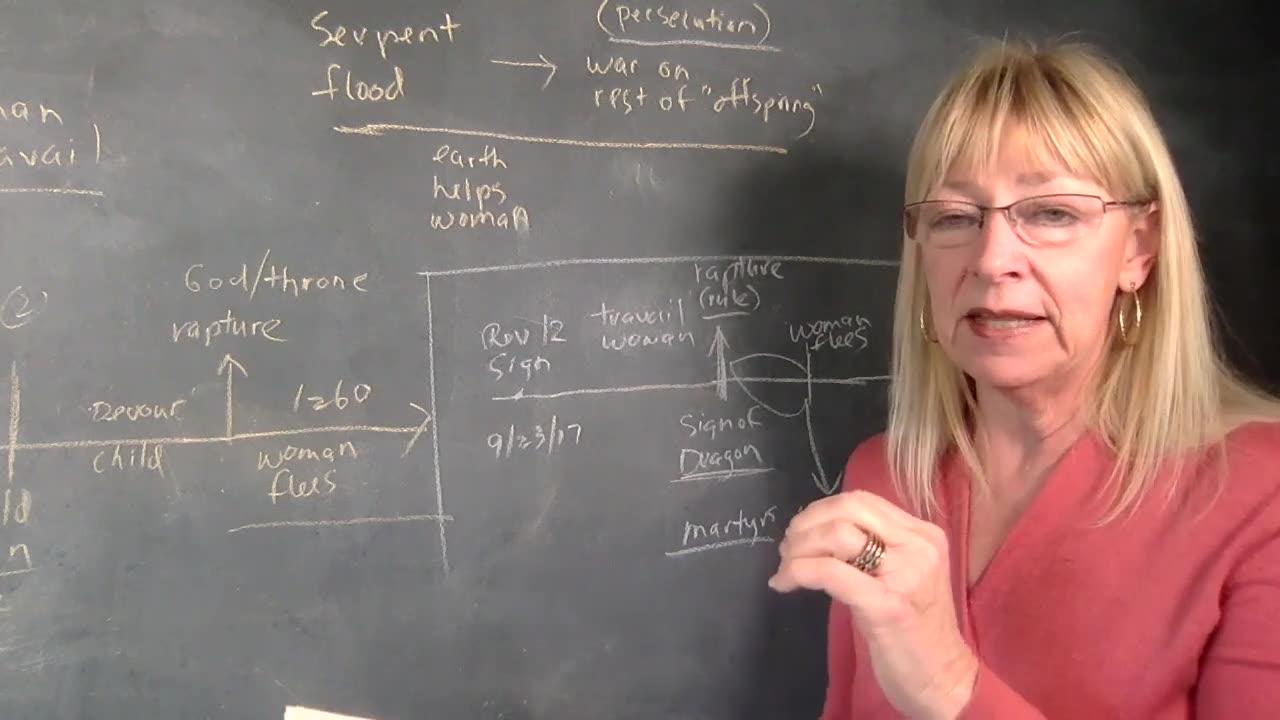 Serpent
flood
(persecution)
war on
rest of "offspring"
avail
earth
helps
woman
2
God/throne
rapture
Devour
child
1260
woman
flees
Rev 12
Sign
9/23/17
travail
woman
rapture
(rule)
woman
flees
Sign of
Dragon
martyrs